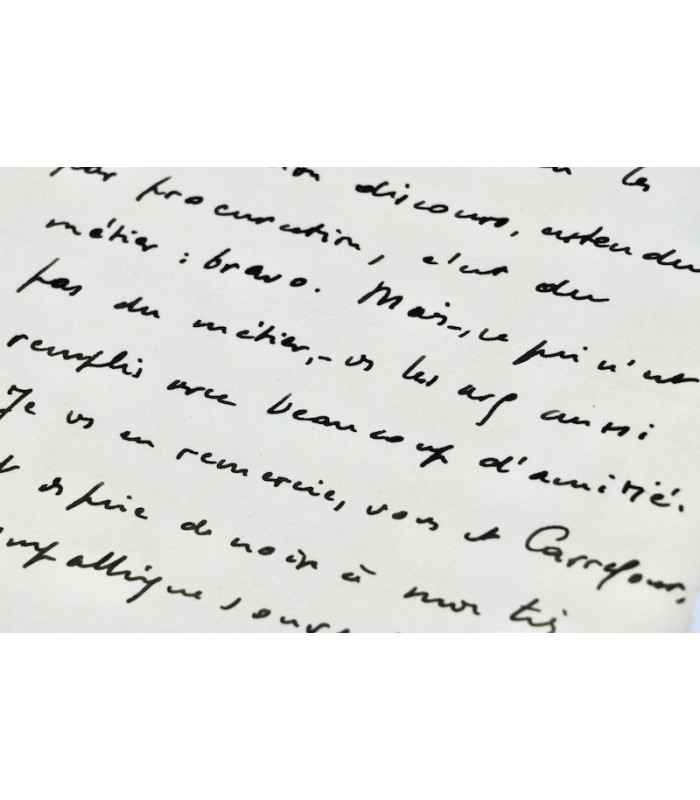 discours, entendu
par procuration, c'est du
métier : bravo. Mais, ce qui n'est
pas du métier, - vs les avez aussi
remplis avec beaucoup d'amitié.
Je vs en remercie, vous et Carrefour,
vs prie de croire à mon très
sympathique souv